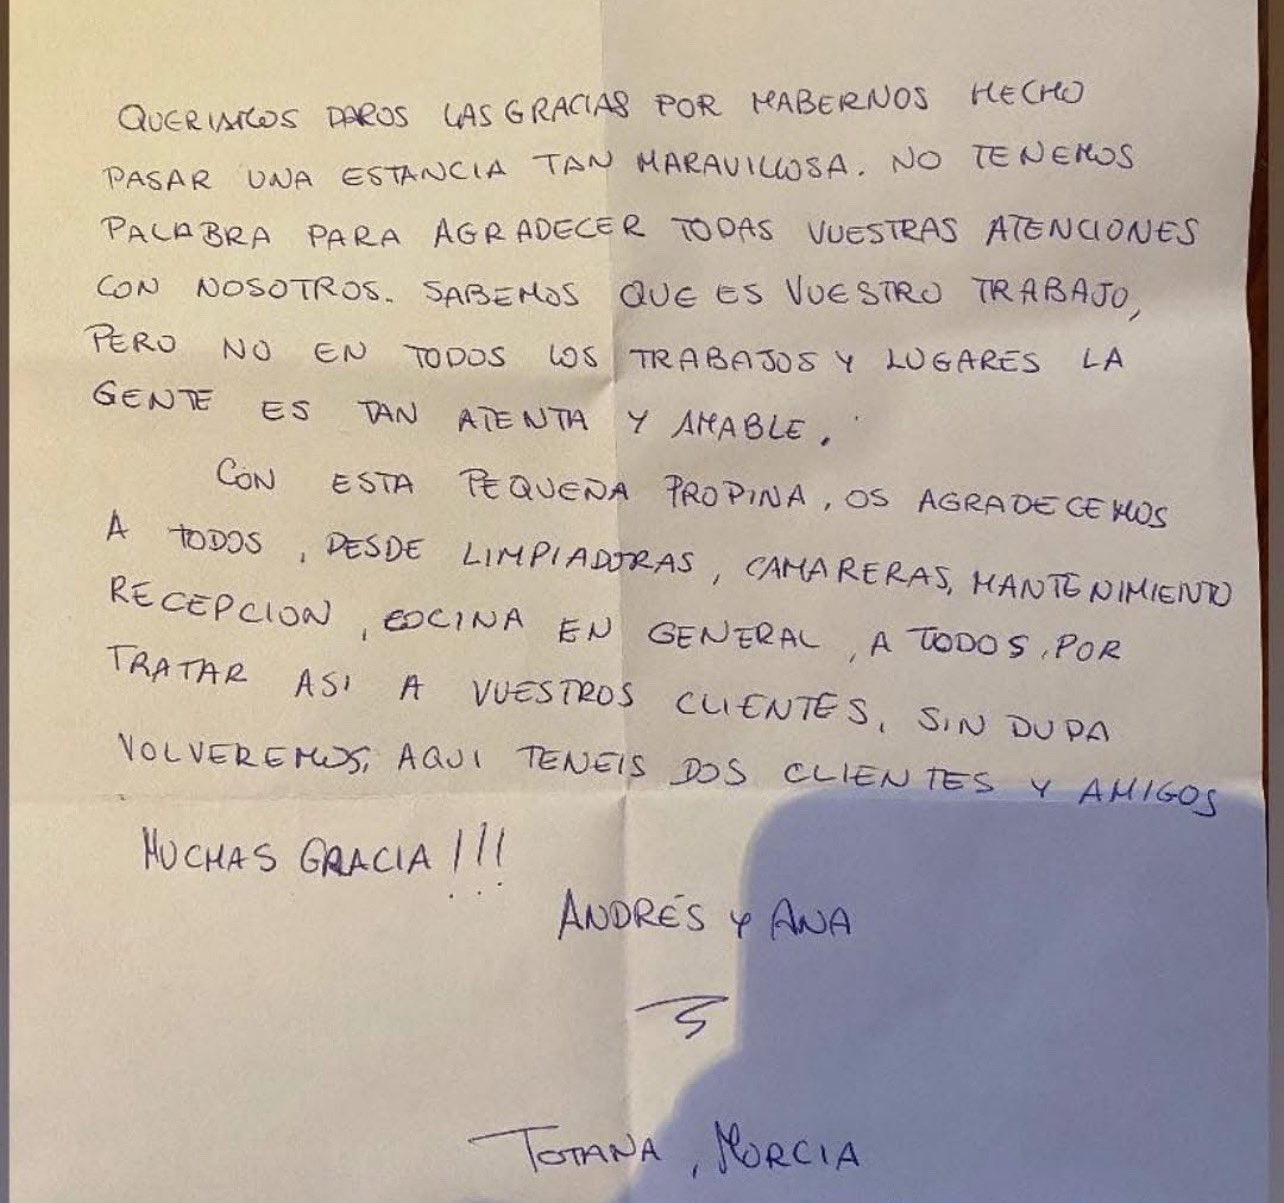 QUERIAMOS DAROS LAS GRACIAS POR HABERNOS HECHO
PASAR UNA ESTANCIA TAN MARAVILLOSA. NO TENEMOS
PALABRA PARA AGRADECER TODAS VUESTRAS ATENCIONES
CON NOSOTROS. SABEMOS QUE ES VUESTRO TRABAJO,
PERO NO EN TODOS LOS TRABAJOS Y LUGARES LA
GENTE ES TAN ATENTA Y AMABLE.
CON ESTA PEQUEÑA PROPINA, OS AGRADECEMOS
A TODOS, DESDE LIMPIADORAS, CAMARERAS, MANTENIMIENTO
RECEPCION, COCINA EN GENERAL, A TODOS, POR
TRATAR ASI A VUESTROS CLIENTES, SIN DUDA
VOLVEREMOS, AQUI TENEIS DOS CLIENTES Y AMIGOS
MUCHAS GRACIA!!!
ANDRÉS Y ANA
TOTANA, MURCIA